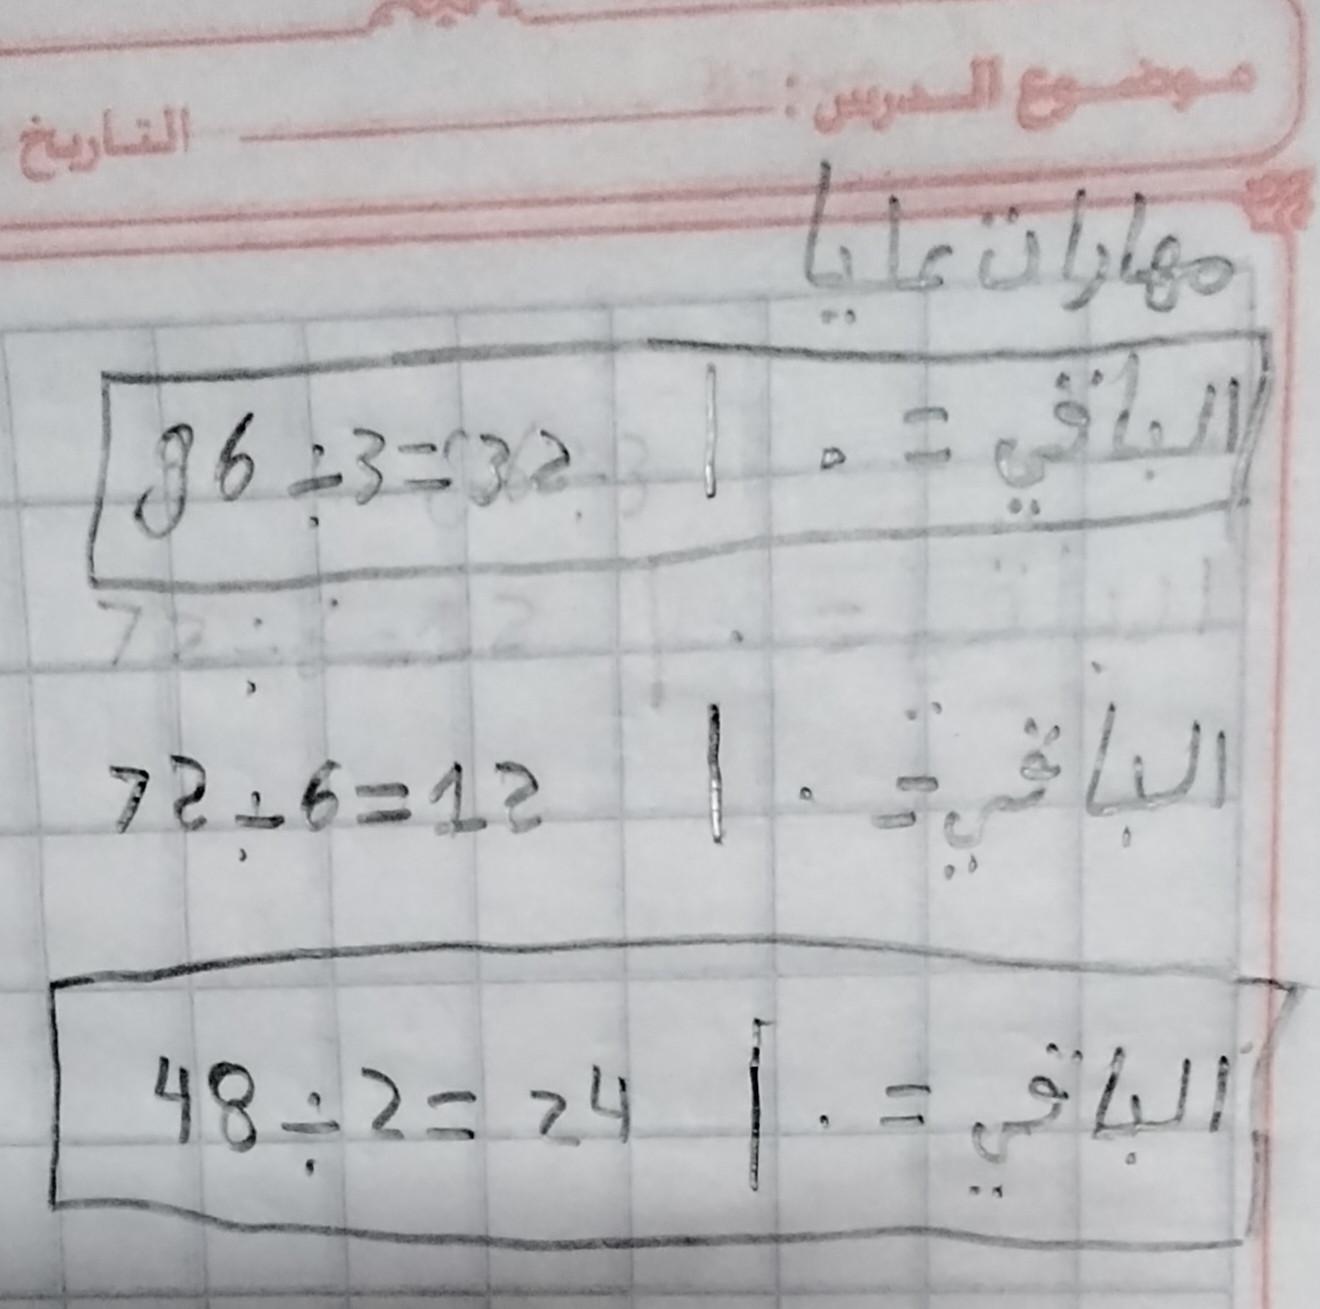 موضوع الدرس : التاريخ
مهارات عليا
96 ÷ 3 = 32 | الباقي = ٠
72 ÷ 6 = 12 | الباقي = ٠
48 ÷ 2 = 24 | الباقي = ٠